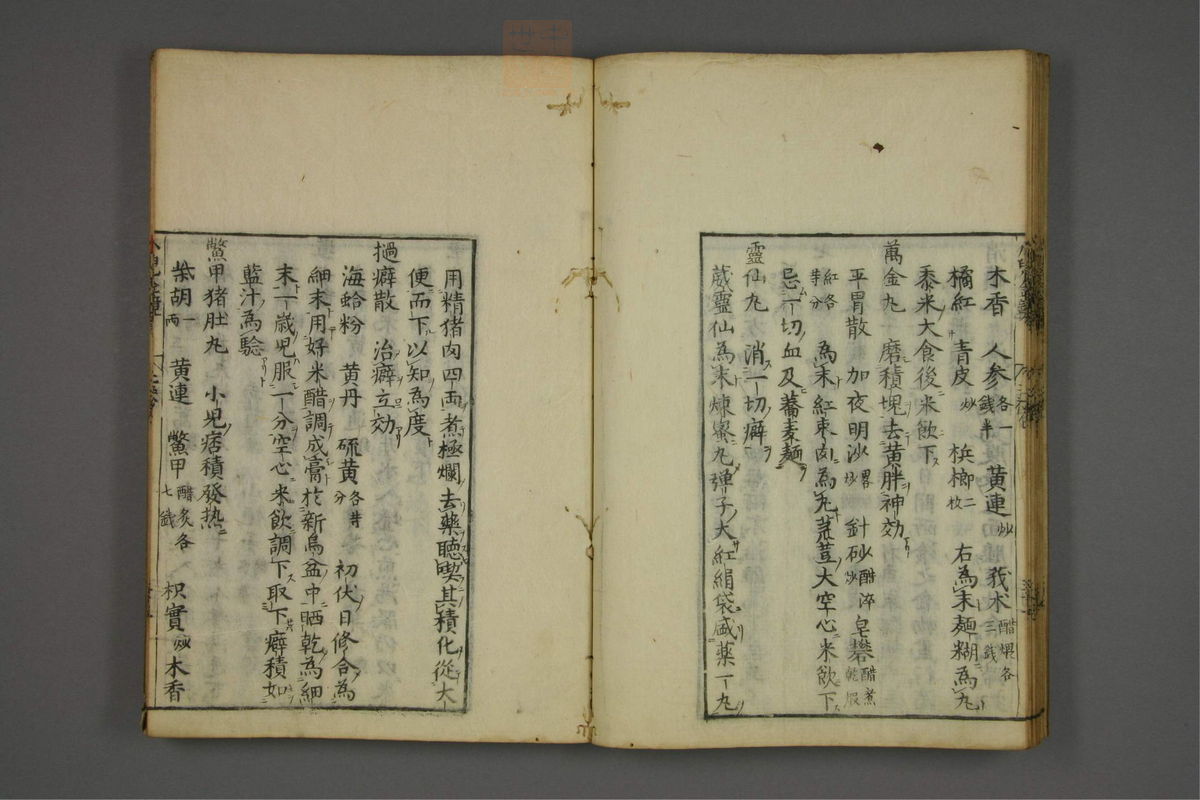 木香 人参各一錢半 黄連炒 莪朮醋煨各三錢
橘紅 青皮炒 梹榔二枚 右為末麺糊為丸
黍米大食後米飲下
萬金丸 磨積塊去黄胖神効
平胃散 加夜明沙畧炒 針砂醋淬炒 皂礬醋煮乾
紅各半分 為末紅枣肉為丸菉荳大空心米飲下
忌一切血及蕎麦麺
靈仙丸 消一切癖
葳靈仙為末煉蜜丸弹子大紅絹袋盛薬一丸
用精猪肉四両煮極爛去藥聴喫其積化從大
便而下以知為度
撾癖散 治癖立効
海蛤粉 黄丹 硫黄各半分 初伏日修合為
細末用好米醋調成膏於新烏盆中晒乾為細
末一歳児服一分空心米飲調下取下癖積如
藍汁為驗
鱉甲猪肚丸 小児痞積發热
柴胡一両 黄連 鱉甲醋炙各七錢 枳實炒 木香